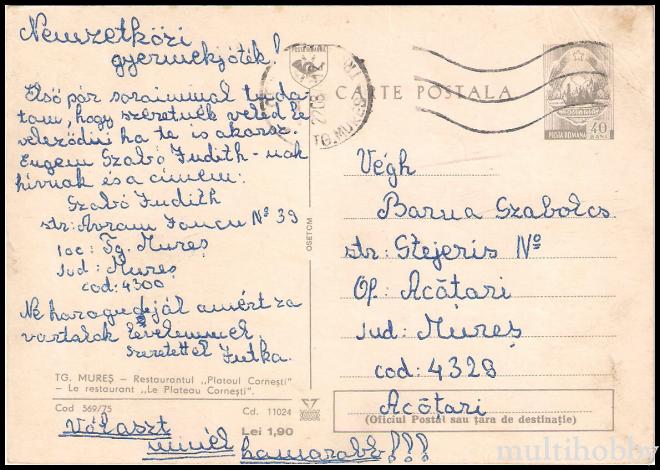 Nemzetközi
gyermekjóték!
Első pár soraimmal tuda-
tom, hogy szeretnék veled le
veleződni ha te is akarsz.
Engem Szabó Judith-nak
hívnak és a címem:
Szabó Judith
str: Avram Iancu Nº 39
loc: Tg. Mureș
Jud: Mureș
cod: 4300
Ne haragudjál amiért za
vartalak levelemmel.
Szeretettel Jutka.
TG. MUREȘ – Restaurantul „Platoul Cornești"
– Le restaurant „Le Plateau Cornești".
Cod 369/75
Cd. 11024
Lei 1,90
Választ
minél hamarabb!!!
OSETOM
CARTE POSTALA
TG. MUREȘ
POSTA ROMANA
40
BANI
Végh
Barna Szabolcs
str: Stejeris Nº
Of. Acățari
Jud: Mureș
cod: 4328
Acățari
(Oficiul Poștal sau țara de destinație)
multihobby